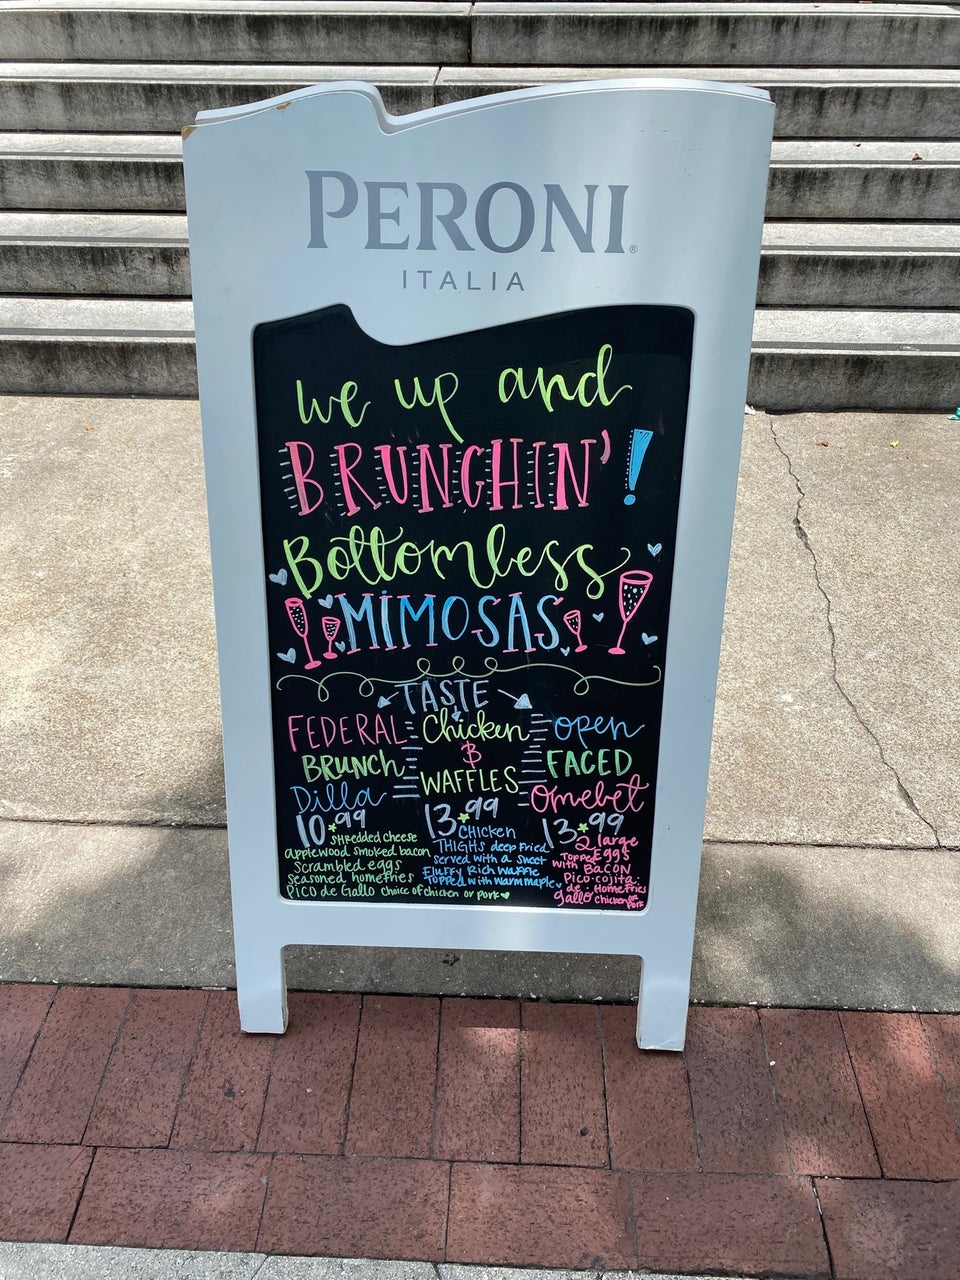 PERONI®
ITALIA
we up and
BRUNCHIN'!
Bottomless
MIMOSAS
TASTE
FEDERAL
BRUNCH
Dilla
10.99
SHREDDED CHEESE
applewood smoked bacon
Scrambled eggs
seasoned homefries
PICO de Gallo choice of chicken or pork
Chicken
&
WAFFLES
13.99
CHICKEN
THIGHS deep fried
served with a sweet
Fluffy Rich waffle
Topped with warm maple
open
FACED
Omelet
13.99
2 large
Eggs
Topped
with BACON
Pico cojita
de Homefries
gallo chicken or
Pork